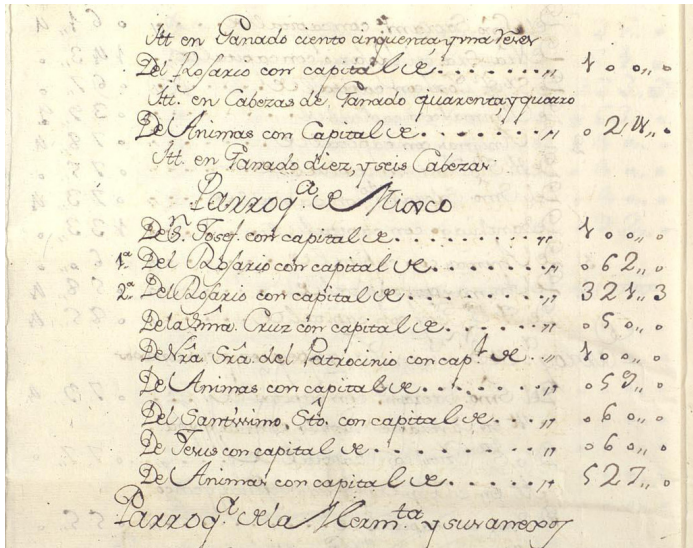 Itt. en Ganado ciento cinquenta, y una Reses
Del Rosario con capital de . . . . . . . „ 1 0 0„ 0
Itt. en Cabezas de Ganado quarenta, y quatro
De Animas con Capital de . . . . . . . „ 0 2 4„ 0
Itt. en Ganado diez, y seis Cabezas
Parroq.ª de Mixco
De Sn. Josef. con capital de . . . . . . . . „ 1 0 0„ 0
1.ª Del Rosario con capital de . . . . . . „ 0 6 2„ 0
2.ª Del Rosario con capital de . . . . . . „ 3 2 1„ 3
De la Sma. Cruz con capital de . . . . „ 0 5 0„ 0
De Nra. Sra. del Patrocinio con cap.l de . „ 1 0 0„ 0
De Animas con capital de . . . . . . . „ 0 5 9„ 0
Del Santissimo Sto. con capital de . . . „ 0 6 0„ 0
De Jesus con capital de . . . . . . . „ 0 6 0„ 0
De Animas con capital de . . . . . . „ 5 2 7„ 0
Parroq.ª de la Herm.ta y sus anexos